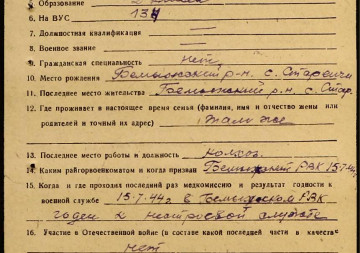 5. Образование 2 класса
6. На ВУС 134
7. Должностная квалификация —
8. Военное звание —
9. Гражданская специальность нет
10. Место рождения р-н с.
11. Последнее место жительства р-н. с.
12. Где проживает в настоящее время семья (фамилия, имя и отчество жены или
родителей и точный их адрес) там же
13. Последнее место работы и должность колхоз
14. Каким райгорвоенкоматом и когда призван РВК 15.7.44г.
15. Когда и где проходил последний раз медкомиссию и результат годности к
военной службе 15.7.44г. в РВК
годен к нестроевой службе
16. Участие в Отечественной войне (в составе какой последней части в качестве
нет